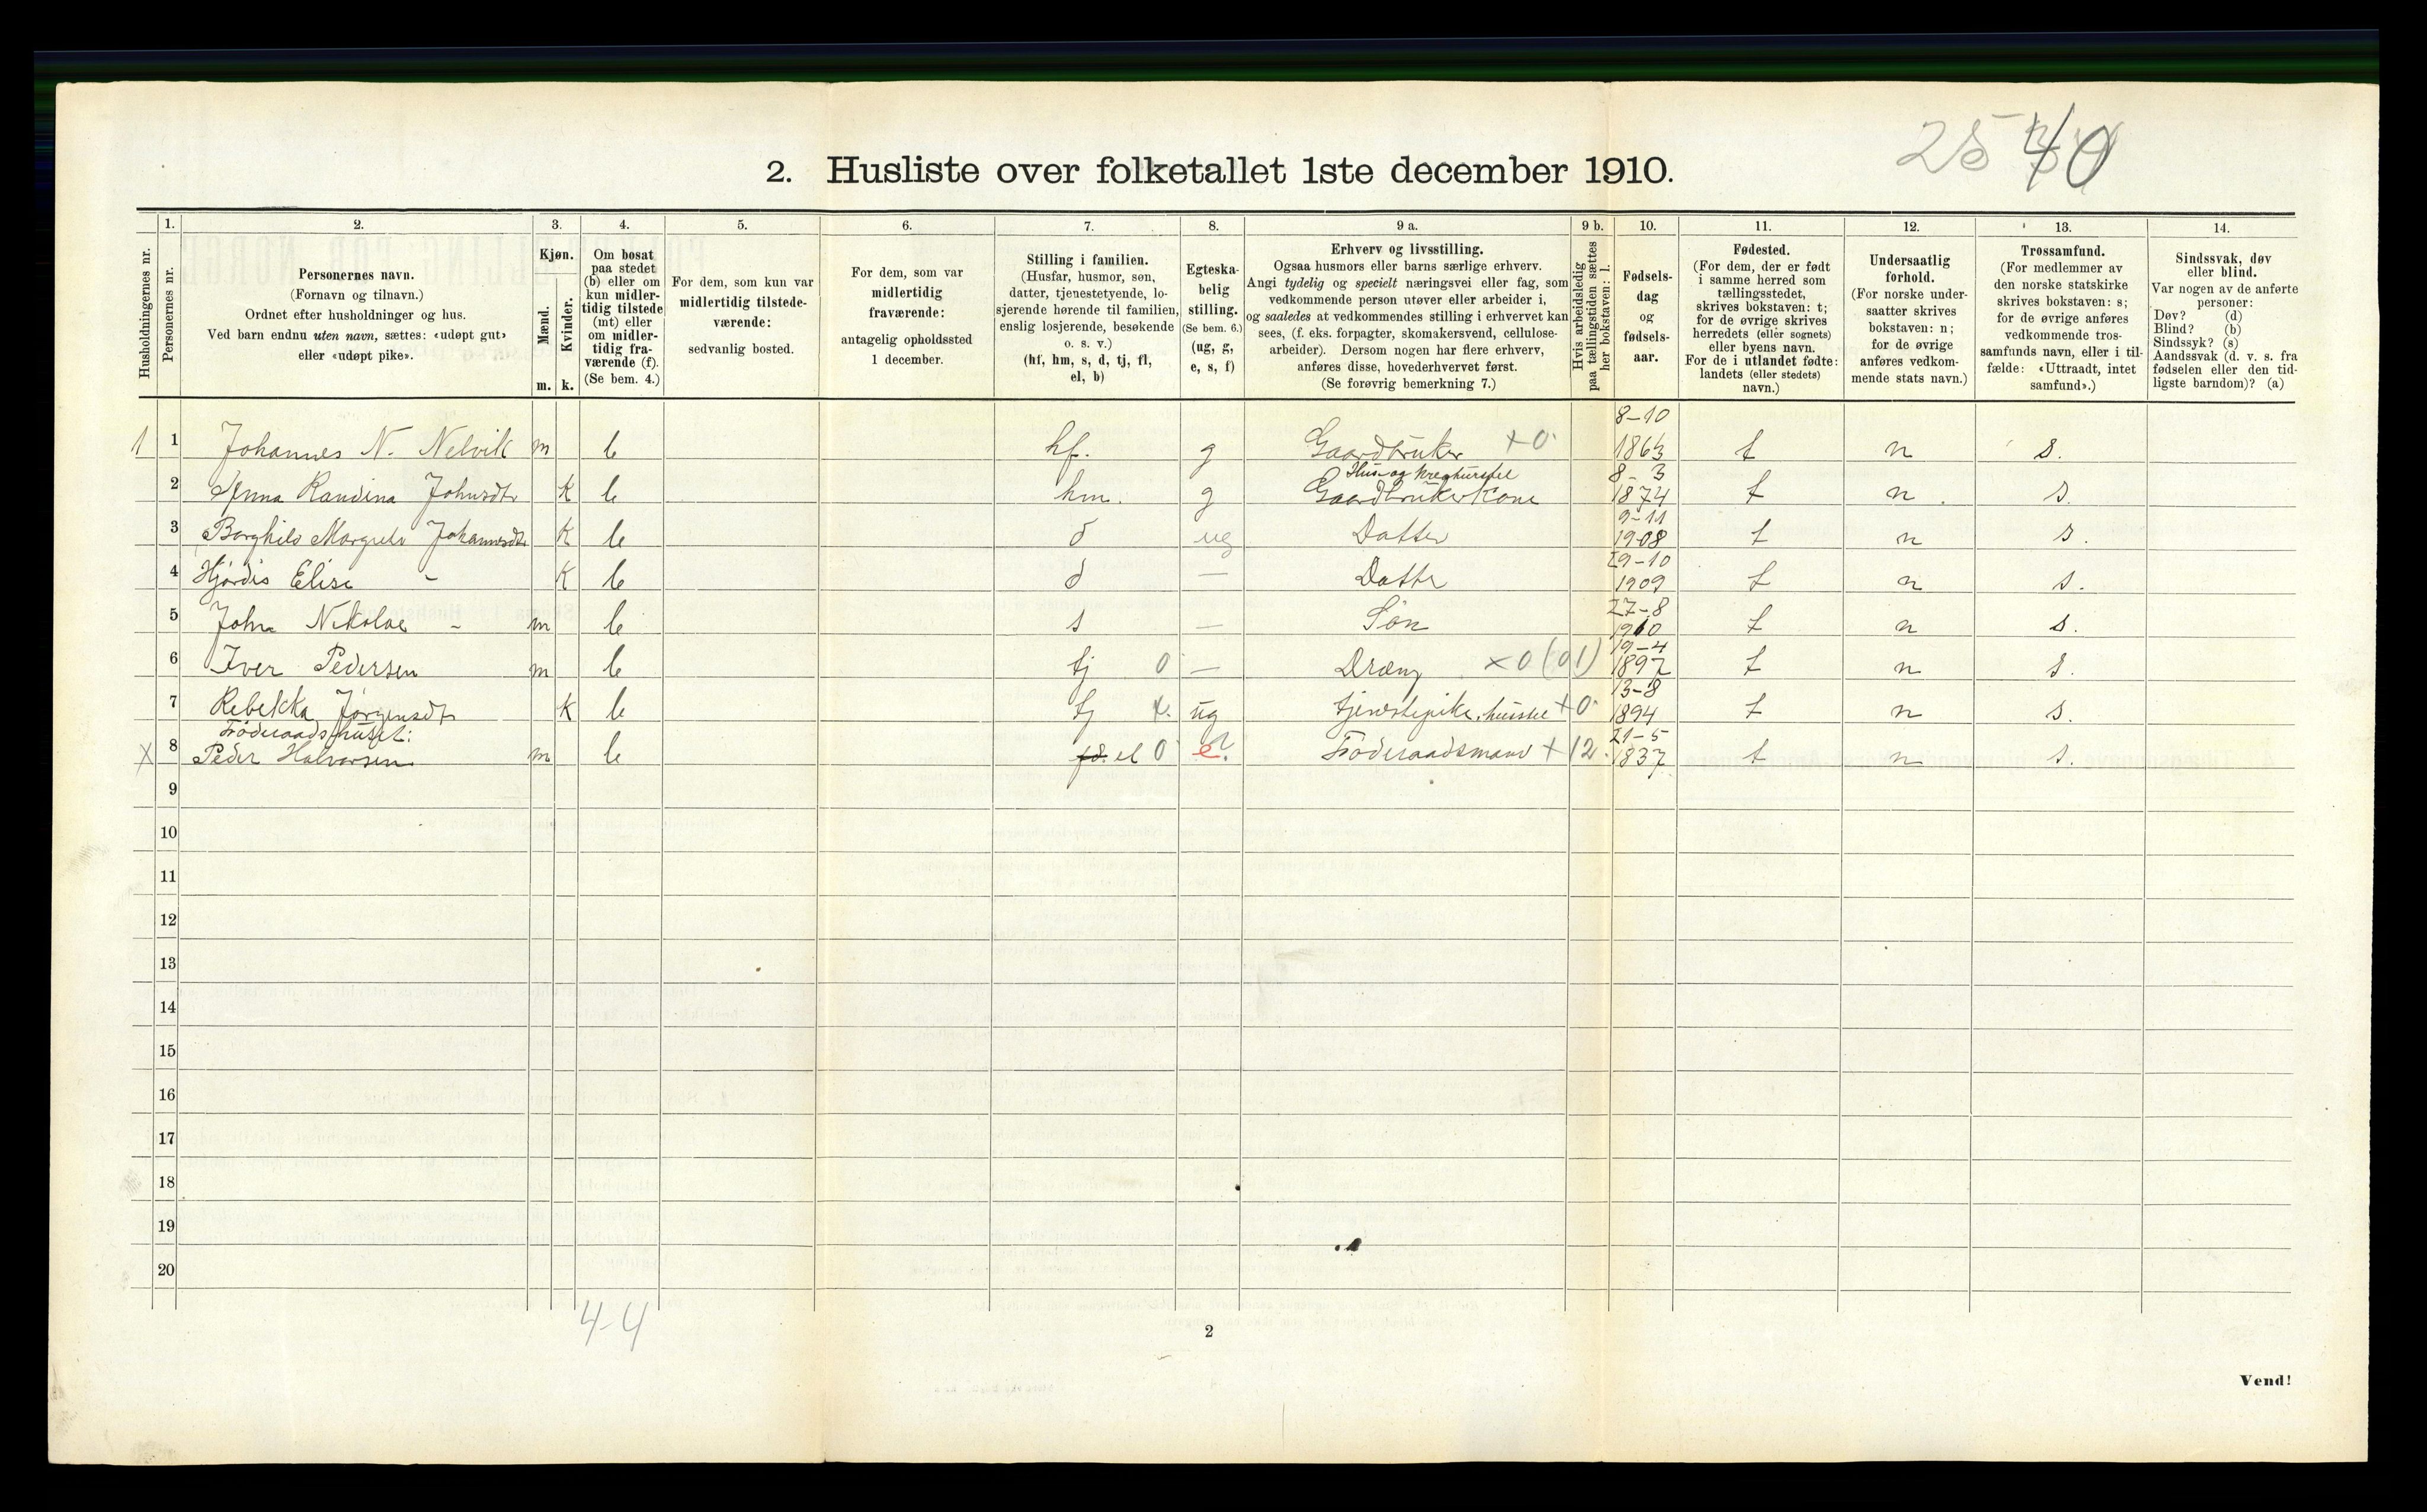 25 40
2. Husliste over folketallet 1ste december 1910.
Husholdningernes nr.
1.
Personernes nr.
2.
Personernes navn.
(Fornavn og tilnavn.)
Ordnet efter husholdninger og hus.
Ved barn endnu uten navn, sættes: «udøpt gut»
eller «udøpt pike».
3.
Kjøn.
Mænd.
Kvinder.
m. k.
4.
Om bosat
paa stedet
(b) eller om
kun midler-
tidig tilstede
(mt) eller
om midler-
tidig fra-
værende (f).
(Se bem. 4.)
5.
For dem, som kun var
midlertidig tilstede-
værende:
sedvanlig bosted.
6.
For dem, som var
midlertidig
fraværende:
antagelig opholdssted
1 december.
7.
Stilling i familien.
(Husfar, husmor, søn,
datter, tjenestetyende, lo-
sjerende hørende til familien,
enslig losjerende, besøkende
o. s. v.)
(hf, hm, s, d, tj, fl,
el, b)
8.
Egteska-
belig
stilling.
(Se bem. 6.)
(ug, g,
e, s, f)
9 a.
Erhverv og livsstilling.
Ogsaa husmors eller barns særlige erhverv.
Angi tydelig og specielt næringsvei eller fag, som
vedkommende person utøver eller arbeider i,
og saaledes at vedkommendes stilling i erhvervet kan
sees, (f. eks. forpagter, skomakersvend, cellulose-
arbeider). Dersom nogen har flere erhverv,
anføres disse, hovederhvervet først.
(Se forøvrig bemerkning 7.)
9 b.
Hvis arbeidsledig
paa tællingstiden sættes
her bokstaven: l.
10.
Fødsels-
dag
og
fødsels-
aar.
11.
Fødested.
(For dem, der er født
i samme herred som
tællingsstedet,
skrives bokstaven: t;
for de øvrige skrives
herredets (eller sognets)
eller byens navn.
For de i utlandet fødte:
landets (eller stedets)
navn.)
12.
Undersaatlig
forhold.
(For norske under-
saatter skrives
bokstaven: n;
for de øvrige
anføres vedkom-
mende stats navn.)
13.
Trossamfund.
(For medlemmer av
den norske statskirke
skrives bokstaven: s;
for de øvrige anføres
vedkommende tros-
samfunds navn, eller i til-
fælde: «Uttraadt, intet
samfund».)
14.
Sindssvak, døv
eller blind.
Var nogen av de anførte
personer:
Døv? (d)
Blind? (b)
Sindssyk? (s)
Aandssvak (d. v. s. fra
fødselen eller den tid-
ligste barndom)? (a)
8-10
1 1 Johannes N. Nelvik m b hf. g Gaardbruker +0 1863 t n s.
Hus og kreaturstel 8-3
2 Anna Randina Johnsdtr K b hm. g Gaardbruker Kone 1874 t n. s.
9-11
3 Borghild Margrete Johannesdtr K b d ug Datter 1908 t n s.
29-10
4 Hjördis Elise - K b d — Datter 1909 t n s.
27-8
5 John Nikolai - m b s — Sön 1910 t n s.
19-4
6 Iver Pedersen m b tj 0 — Dræng x0 (01) 1897 t n s.
13-8
7 Rebekka Jörgensdtr K b tj x. ug tjenestepike, husstel +0 1894 t n s.
Föderaadshuset: 21-5
X 8 Peder Halvorsen m b fd. el 0 e Föderaadsmand +12. 1837 t n s.
9
10
11
12
13
14
15
16
17
18
19
20
4-4
2
Vend!